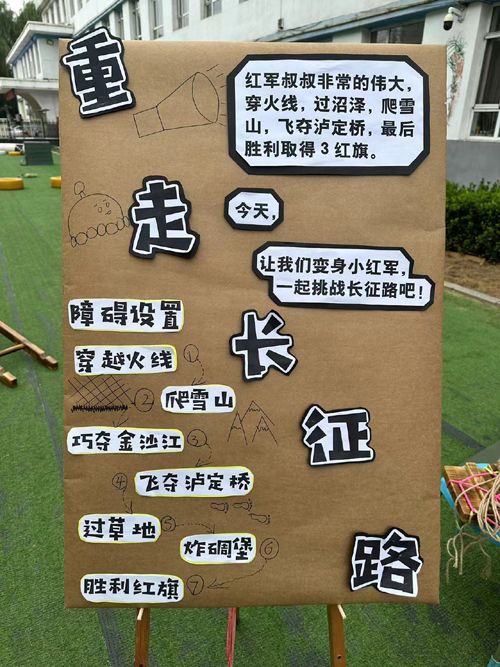 重走长征路
红军叔叔非常的伟大，
穿火线，过沼泽，爬雪
山，飞夺泸定桥，最后
胜利取得3红旗。
今天，
让我们变身小红军，
一起挑战长征路吧！
障碍设置
穿越火线 ①
② 爬雪山
巧夺金沙江 ③
④ 飞夺泸定桥
过草地 ⑤
炸碉堡 ⑥
胜利红旗 ⑦